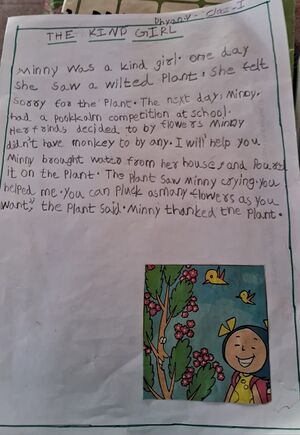 Dhyan.y - Clas-I
THE KIND GIRL
Minny was a kind girl. one day
she saw a wilted Plant. she felt
sorry for the Plant. The next day, Minny.
had a pookkalm competition at school.
Her frinds decided to by flowers Minny
didn't have monkey to by any. I will help you
Minny brought water from her house, and Poured
it on the Plant. The Plant saw minny crying. you
helped me. you can pluck as many flowers as you
want," the Plant said. Minny thanked the Plant.